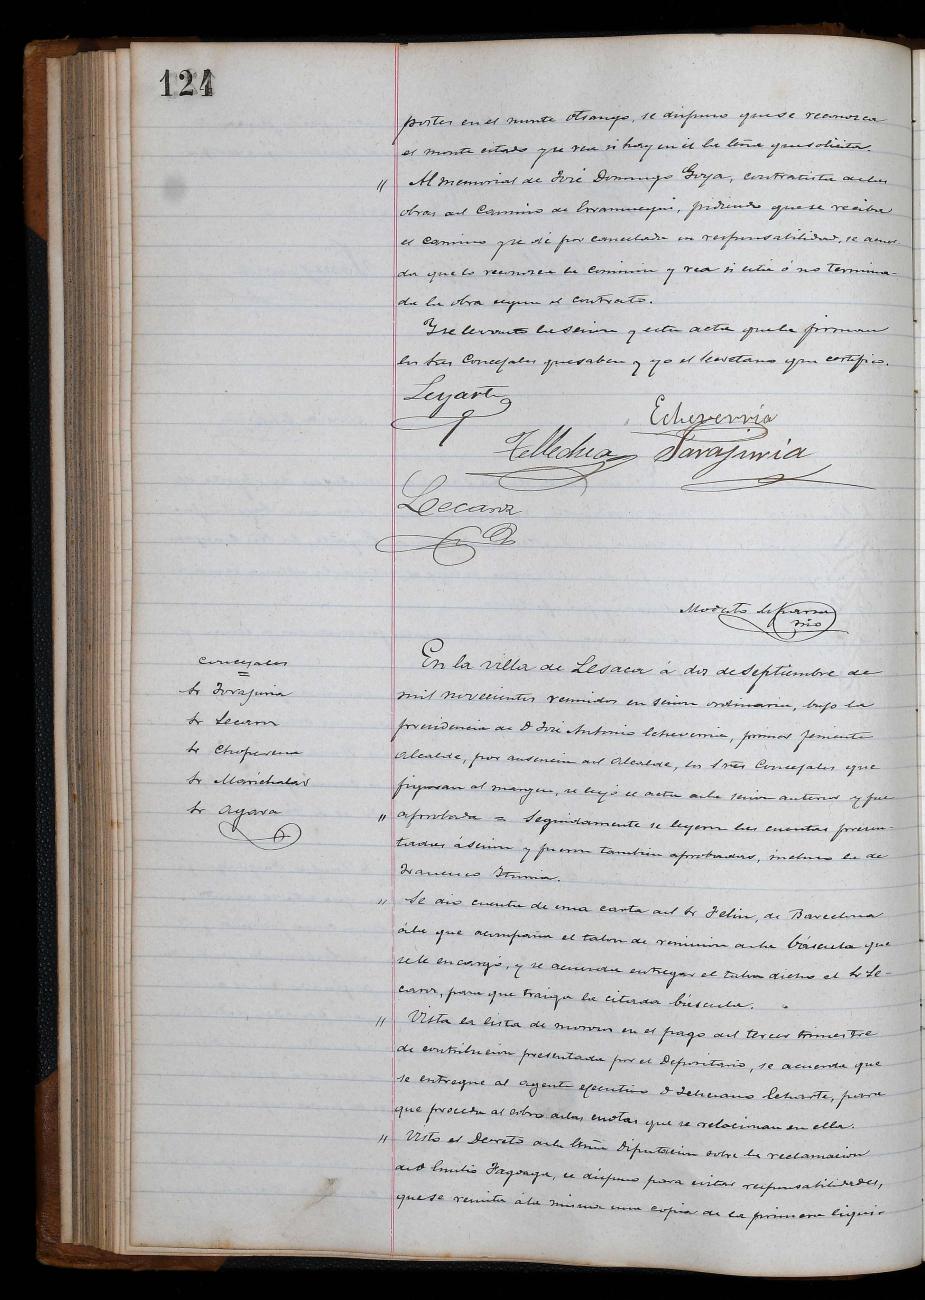 124
portes en el monte Otsango, se dispuso que se reconozca
el monte citado y se vea si hay en él la leña que solicita.
" Al memorial de José Domingo Goya, contratista de las
obras del Camino de, pidiendo que se reciba
el camino y se dé por cancelada su responsabilidad, se acuer-
da que lo reconozca la Comision y vea si está ó no termina-
da la obra segun el contrato.
Y se levantó la sesion y esta acta que la firman
los Sres Concejales que saben y yo el Secretario que certifico.
Echeverria
Tellechea
Lecaroz
Modesto de
Concejales
Sr
Sr Lecaroz
Sr Choperena
Sr Marichalar
Sr Ayara
En la villa de Lesaca á dos de Septiembre de
mil novecientos reunidos en sesion ordinaria, bajo la
presidencia de D José Antonio Echeverria, primer Teniente
Alcalde, por ausencia del Alcalde, los Sres Concejales que
figuran al margen, se leyó el acta de la sesion anterior y fue
" aprobada = Seguidamente se leyeron las cuentas presen-
tadas á sesion y fueron tambien aprobadas, incluso la de
Francisco Iturria.
" Se dió cuenta de una carta del Sr Feliu, de Barcelona
á la que acompaña el talon de remision de la báscula que
se le encargó, y se acuerda entregar el talon dicho al Sr Le-
caroz, para que traiga la citada báscula.
" Vista la lista de morosos en el pago del tercer trimestre
de contribucion presentada por el Depositario, se acuerda que
se entregue al agente ejecutivo D Feliciano, para
que proceda al cobro de las cuotas que se relacionan en ella.
" Visto el Decreto de la Exma Diputacion sobre la reclamacion
de D Emilio Fagoaga, se dispuso para evitar responsabilidades,
que se remita á la misma una copia de la primera liqui-